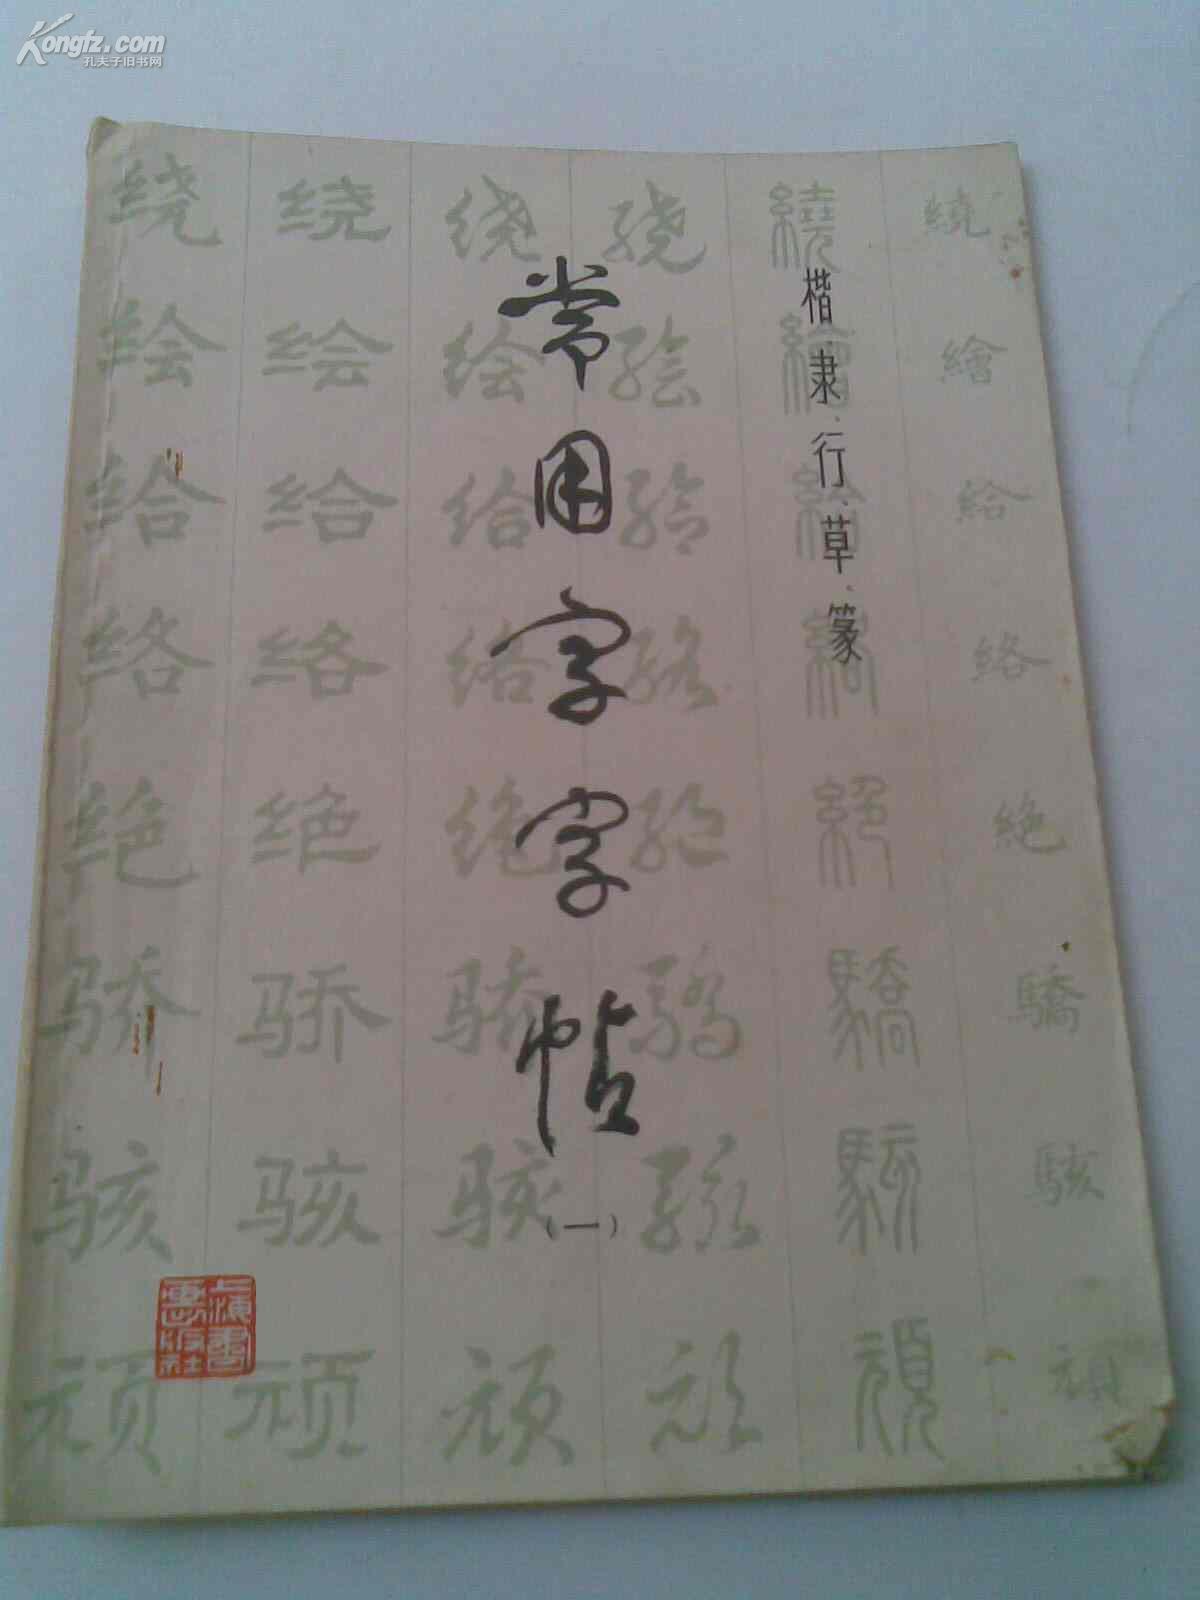 Kongfz.com
孔夫子旧书网
楷、隶、行、草、篆
常用字字帖
（一）
上海书画出版社
绕 绕 绕 绕 繞 繞
绘 绘 绘 绘 繪 繪
给 给 给 给 給 給
络 络 络 络 絡 絡
绝 绝 绝 绝 絕 絶
骄 骄 骄 驕 驕 驕
骇 骇 骇 駭 駭 駭
顽 顽 顽 顽 頑 頑